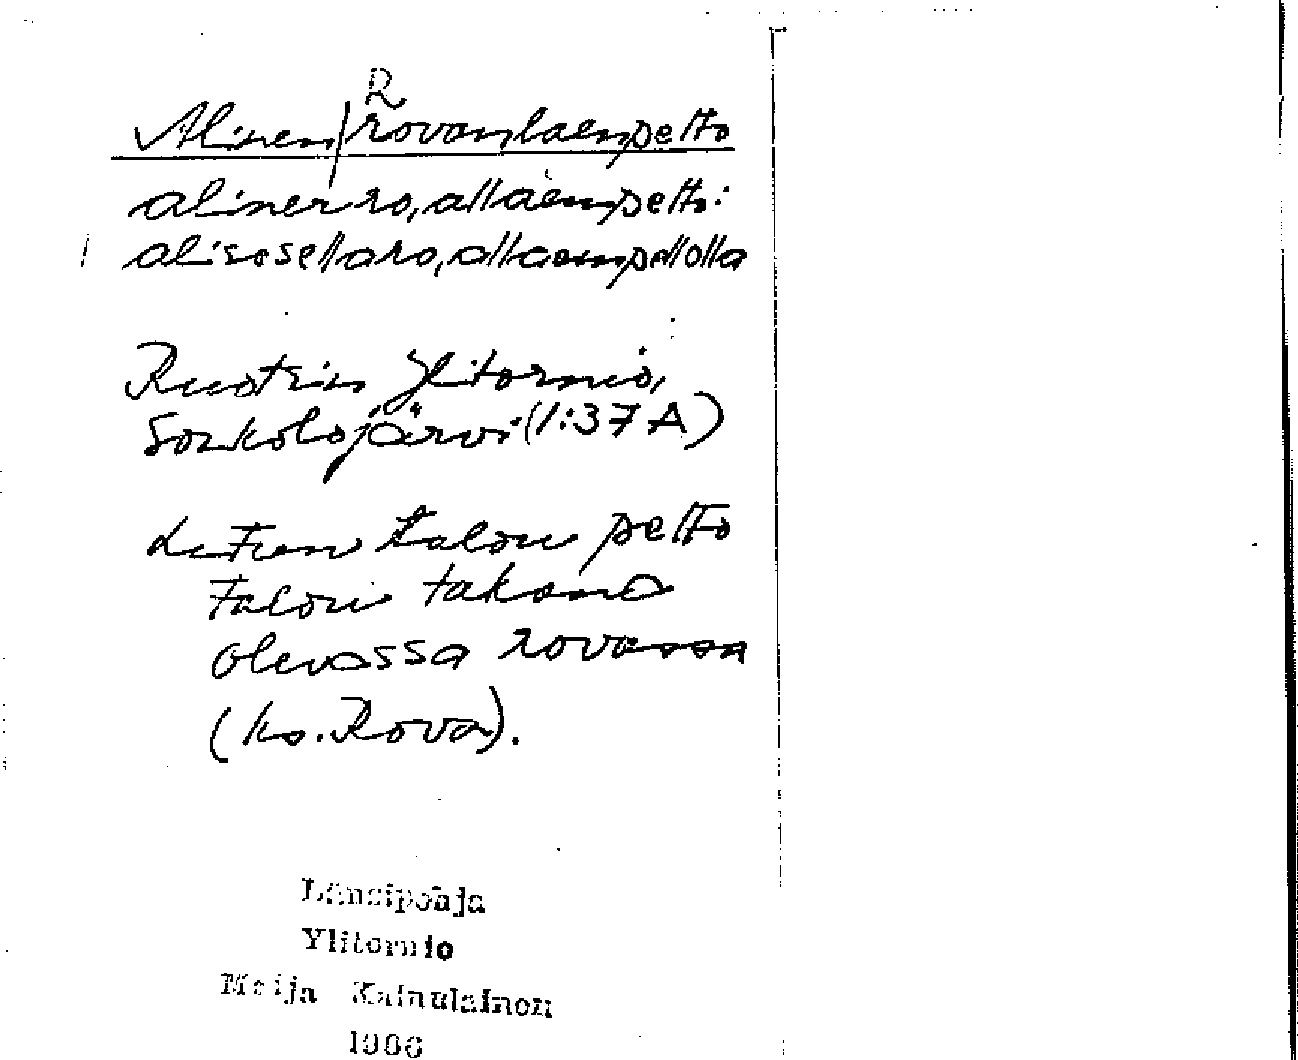 R
Alinen/rovanlaenpelto
alinen ro,allaenpelto:
alisosella ro,allaenpellolla
Ruotsin Ylitornio,
Soukolojärvi (1:37 A)
talon pelto
talon takana
olevassa rovassa
(ks. Rova).
Länsipohja
Ylitornio
Meija Kainulainen
1966